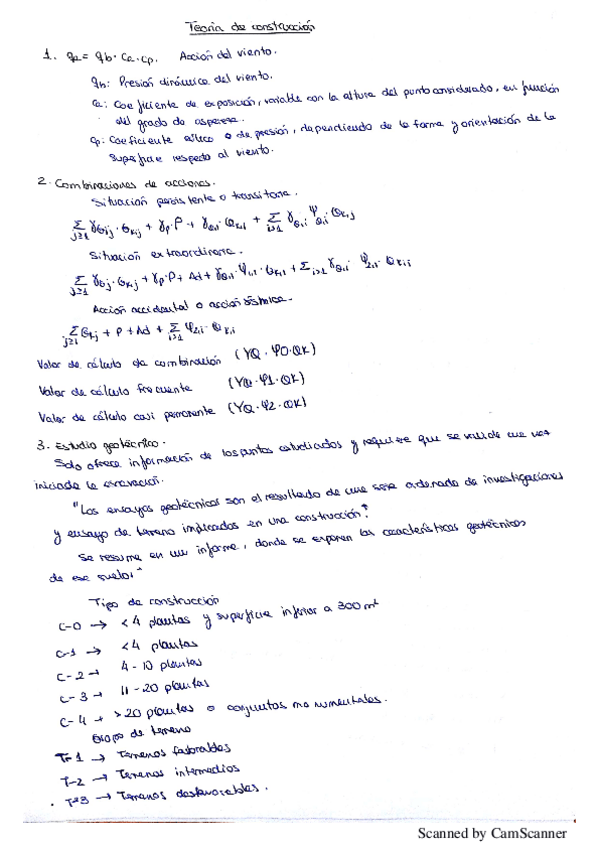 Teoría de construcción
1. qe = qb · ce · cp. Acción del viento.
qb: Presión dinámica del viento.
ce: Coeficiente de exposición, variable con la altura del punto considerado, en función
del grado de aspereza.
cp: Coeficiente eólico o de presión, dependiendo de la forma y orientación de la
superficie respecto al viento.
2. Combinaciones de acciones.
Situación persistente o transitoria.
Σ j≥1 γG,j · Gk,j + γp · P + γQ,1 · Qk,1 + Σ i>1 γQ,i ψ0,i · Qk,i
Situación extraordinaria.
Σ j≥1 γG,j · Gk,j + γp · P + Ad + γQ,1 · ψ1,1 · Qk,1 + Σ i>1 γQ,i · ψ2,i · Qk,i
Acción accidental o acción sísmica.
Σ j≥1 Gk,j + P + Ad + Σ i>1 ψ2,i · Qk,i
Valor de cálculo de combinación (YQ · ψ0 · QK)
Valor de cálculo frecuente (YQ · ψ1 · QK)
Valor de cálculo casi permanente (YQ · ψ2 · QK)
3. Estudio geotécnico.
Solo ofrece información de los puntos estudiados y requiere que se valide una vez
iniciada la excavación.
"Los ensayos geotécnicos son el resultado de una serie ordenada de investigaciones
y ensayo de terreno implicados en una construcción.
Se resume en un informe, donde se exponen las características geotécnicas
de ese suelo."
Tipo de construcción
C-0 → < 4 plantas y superficie inferior a 300 m²
C-1 → < 4 plantas
C-2 → 4 - 10 plantas
C-3 → 11 - 20 plantas
C-4 → > 20 plantas o conjuntos monumentales.
Grupo de terreno
T-1 → Terrenos favorables
T-2 → Terrenos intermedios
T-3 → Terrenos desfavorables.
Scanned by CamScanner